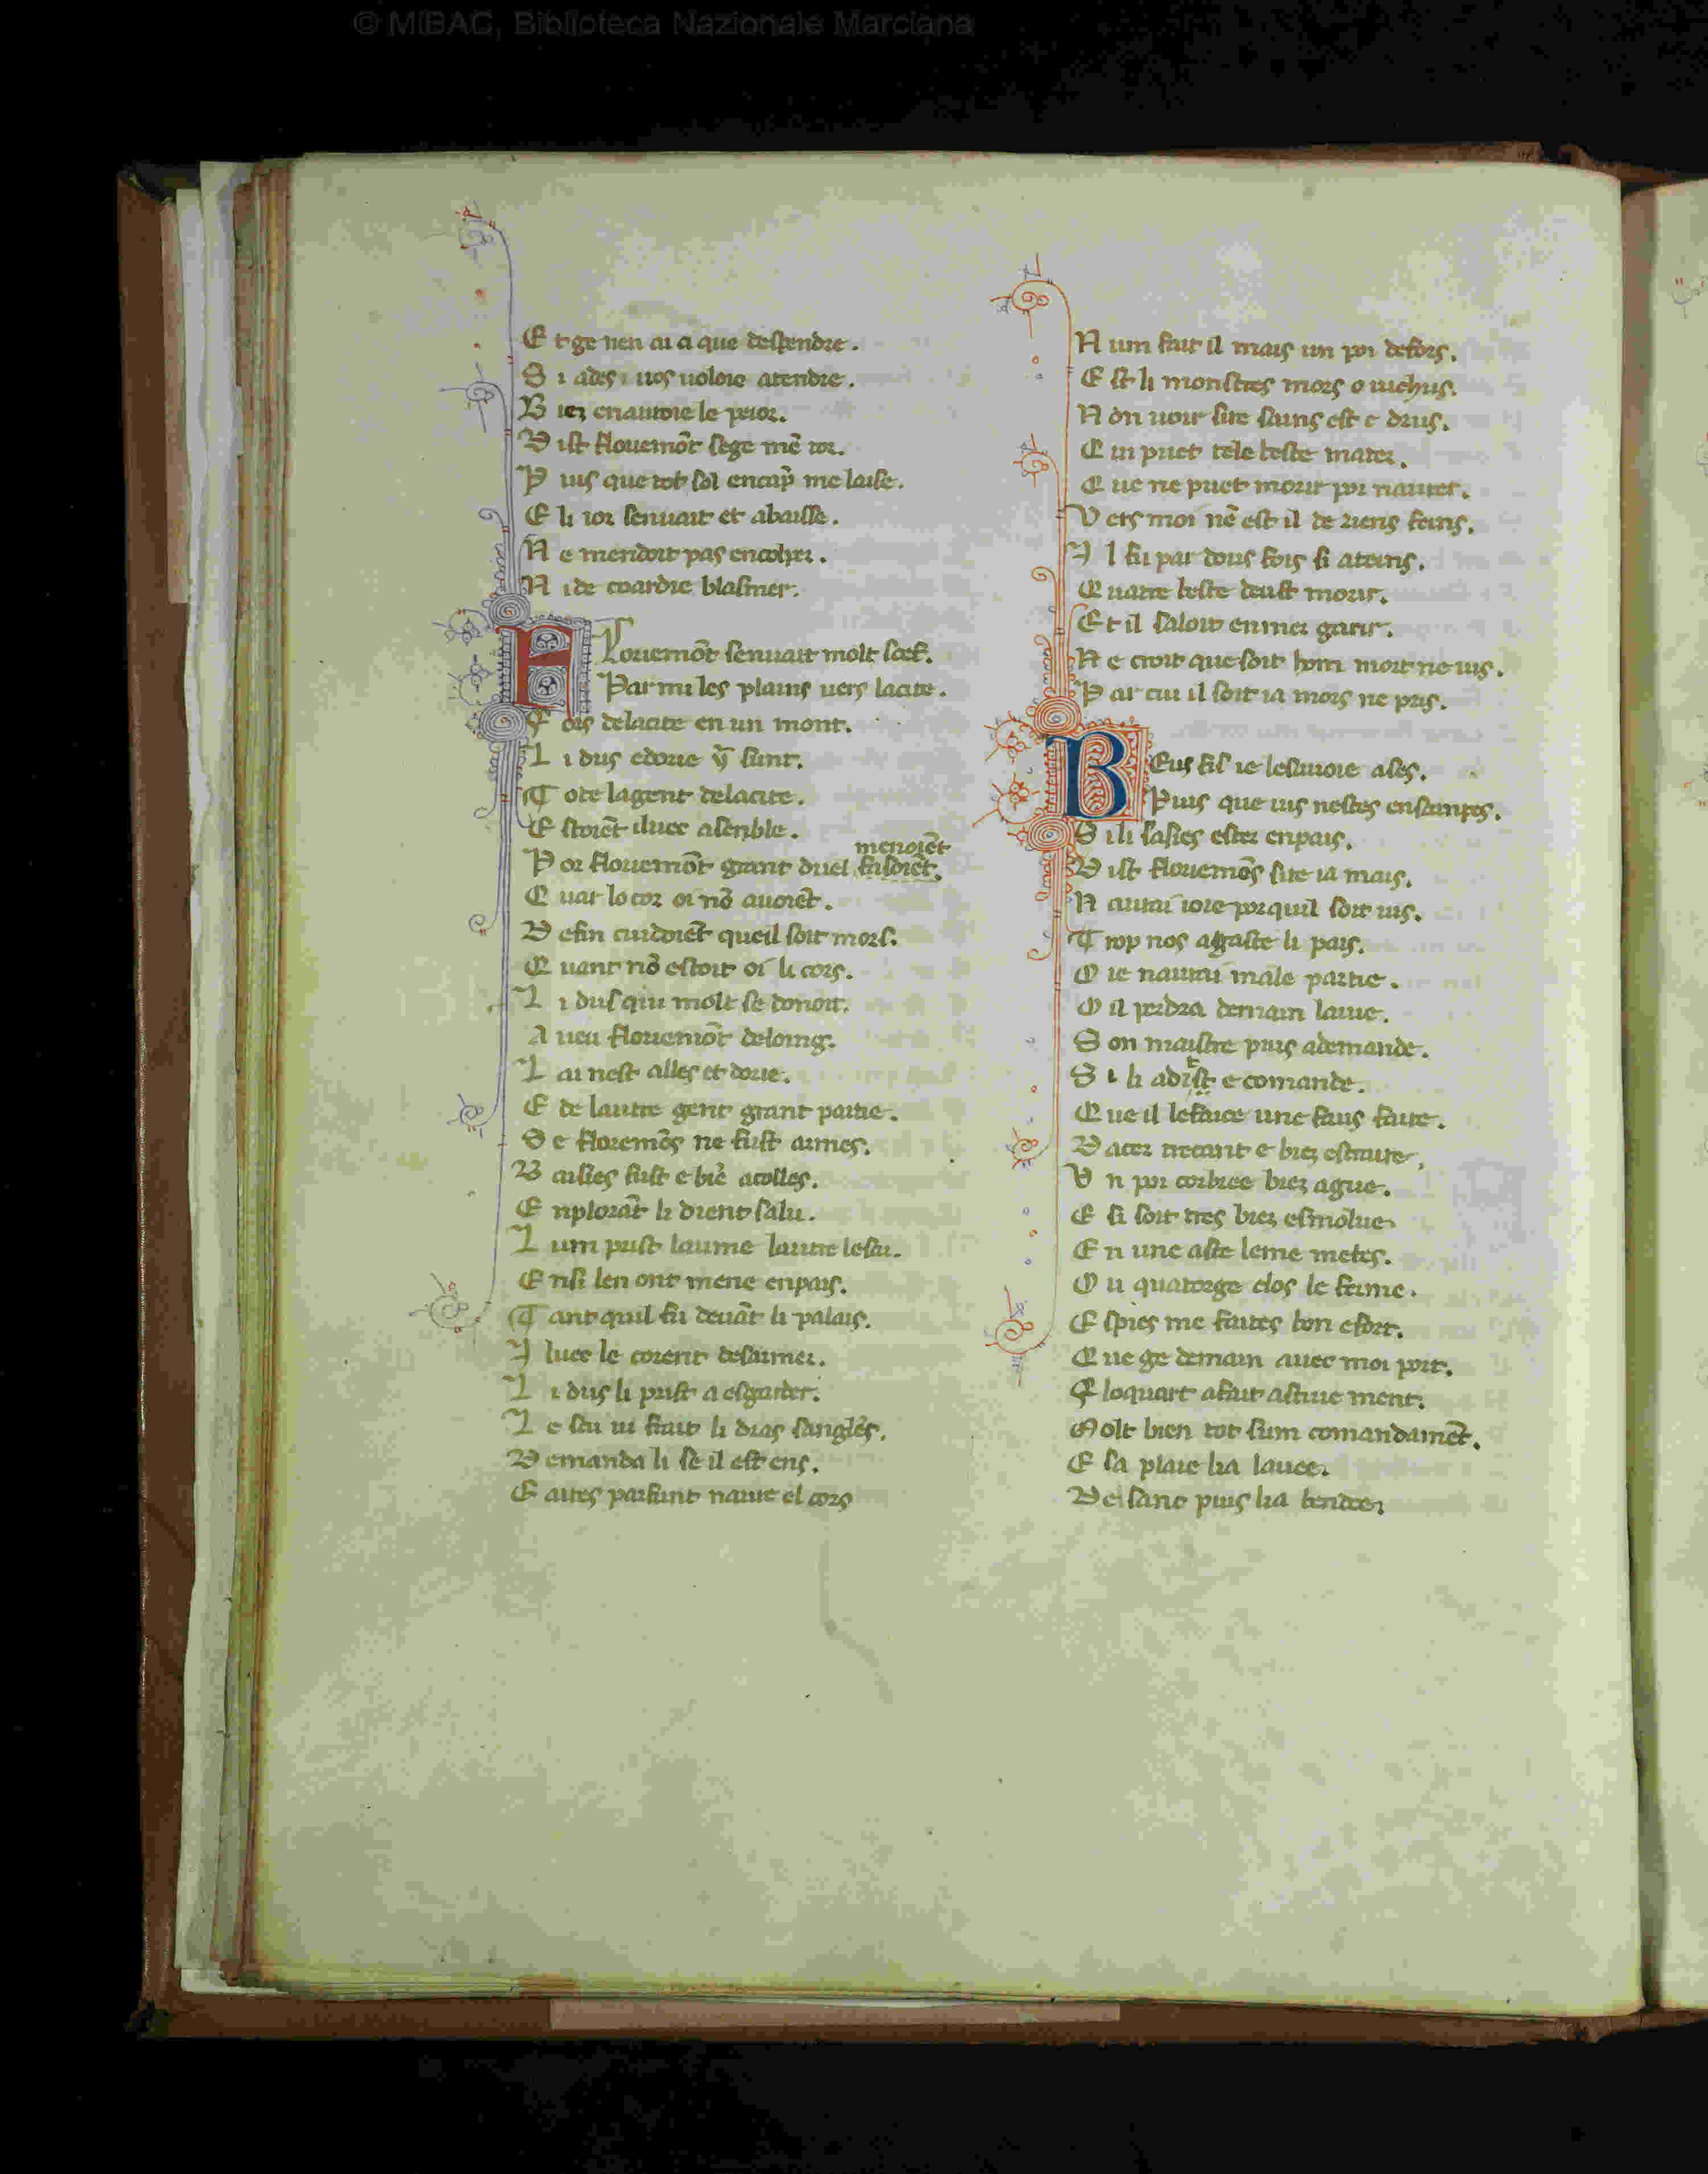 © MiBAC, Biblioteca Nazionale Marciana
E t ge nen ai ci que desfendre.
S i ades i uos uoloie atendre.
B iez en auroie le peior.
D ist flouemōt sege mē tor.
P uis que tot sol encāp me laise.
E li ior senuait et abaisse.
N e mendoit pas encolper.
N i de coardie blasmer.
F Louemōt senuait molt soef.
Par mi les plains uers lacite.
F ors delacite en un mont.
L i dus edorie ỹ sunt.
T ote lagent delacite.
E stoiēt iluec asenble.
menoiēt
P or flouemōt grant duel faisoiēt.
Q uar lo cor oi nō auoiēt.
D efin cuidoiēt queil soit mors.
Q uant nō estoit oi li cors.
L i dus qui molt se donoit.
A ueu flouemōt deloing.
L ai nest alles et dorie.
E de lautre gent grant partie.
S e floremōs ne fust armes.
B aisies fust e biē acolles.
E nplorāt li dient salu.
L um prist laume lautre lescu.
E nsi len ont mene enpais.
T ant quil fu deuāt li palais.
I luec le corent desarmer.
L i dus li prist a esgarder.
L e scu ui frait li dras sanglēs.
D emanda li se il est ens.
E aites parfunt naure el cors
N um fait il mais un poi defors.
E st li monstres mors o uichus.
N on uoir sire sains est e drus.
Q ui puet tele beste mater.
Q ue ne puet morir por naurer.
V ers moi nē est il de riens feins.
I l fu par dous fois si ateins.
Q uatre beste deust morir.
E t il saloit enmer garir.
N e croit que soit hom mort ne uis.
P ar cui il soit ia mors ne pris.
B Eus fil ie lesauoie asés.
Puis que uis nestes enscanpes.
S i li lasies ester enpais.
D ist flouemōs sire ia mais.
N aurai ioie por quil soit uis.
T rop nos agaste li pais.
O ie naurai male partie.
O il perdra demain lauie.
S on maistre puis ademande.
S i li adist e comande.
Q ue il leface une faus faire.
D acer trecant e biez estraire.
U n poi corbiee biez ague.
E si soit tres biez esmolue
E n une aste leme metes.
O u quatorge clos le ferme.
E spies me faites bon efort.
Q ue ge demain auec moi port.
F loquart afait astiue ment.
Molt bien tot sum comandamēt.
E sa plaie lia lauee.
De sanc puis lia bendee